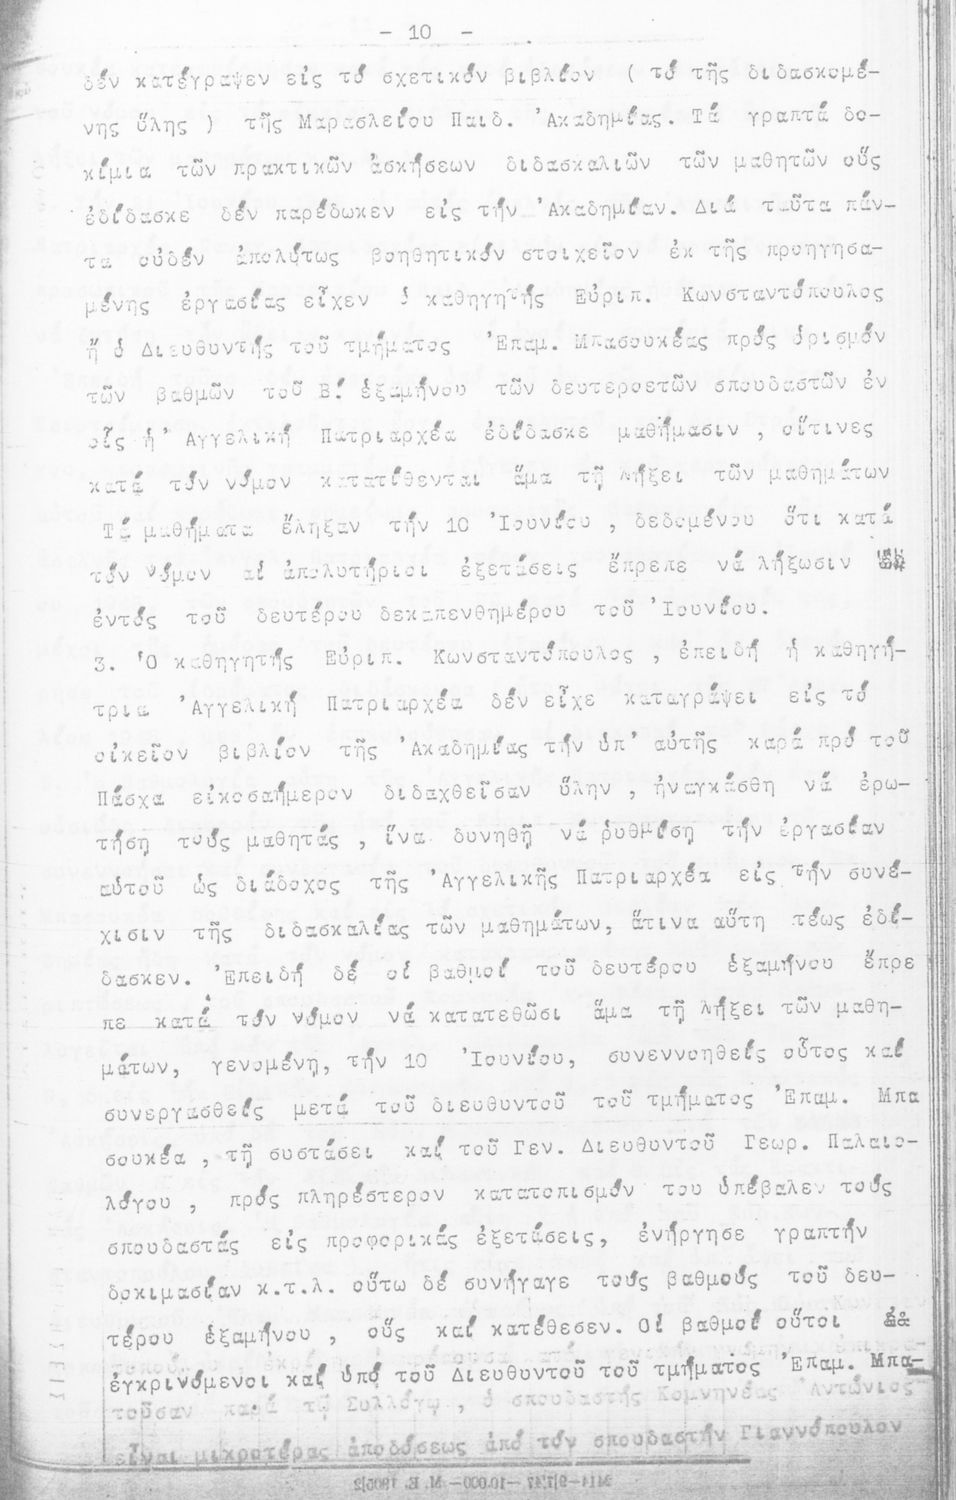 - 10 -
δέν κατέγραψεν εἰς τό σχετικόν βιβλίον ( τό τῆς διδασκομέ-
νης ὕλης ) τῆς Μαρασλείου Παιδ. Ἀκαδημίας. Τά γραπτά δο-
κίμια τῶν πρακτικῶν ἀσκήσεων διδασκαλιῶν τῶν μαθητῶν οὕς
ἐδίδασκε δέν παρέδωκεν εἰς τήν Ἀκαδημίαν. Διά ταῦτα πάν-
τα οὐδέν ἀπολύτως βοηθητικόν στοιχεῖον ἐκ τῆς προηγησα-
μένης ἐργασίας εἶχεν ὁ καθηγητής Εὐριπ. Κωνσταντόπουλος
ἤ ὁ Διευθυντής τοῦ τμήματος Ἐπαμ. Μπασουκέας πρός ὁρισμόν
τῶν βαθμῶν τοῦ Β! ἑξαμήνου τῶν δευτεροετῶν σπουδαστῶν ἐν
οἷς ἡ Ἀγγελική Πατριαρχέα ἐδίδασκε μαθήμασιν , οἵτινες
κατά τόν νόμον κατατίθενται ἅμα τῇ λήξει τῶν μαθημάτων
Τά μαθήματα ἔληξαν τήν 10 Ἰουνίου , δεδομένου ὅτι κατά
τόν νόμον αἱ ἀπολυτήριοι ἐξετάσεις ἔπρεπε νά λήξωσιν
ἐντός τοῦ δευτέρου δεκαπενθημέρου τοῦ Ἰουνίου.
3. Ὁ καθηγητής Εὐριπ. Κωνσταντόπουλος , ἐπειδή ἡ καθηγή-
τρια Ἀγγελική Πατριαρχέα δέν εἶχε καταγράψει εἰς τό
οἰκεῖον βιβλίον τῆς Ἀκαδημίας τήν ὑπ' αὐτῆς καρά πρό τοῦ
Πάσχα εἰκοσαήμερον διδαχθεῖσαν ὕλην , ἠναγκάσθη νά ἐρω-
τήσῃ τούς μαθητάς , ἵνα δυνηθῇ νά ρυθμίσῃ τήν ἐργασίαν
αὐτοῦ ὡς διάδοχος τῆς Ἀγγελικῆς Πατριαρχέα εἰς τήν συνέ-
χισιν τῆς διδασκαλίας τῶν μαθημάτων, ἅτινα αὕτη τέως ἐδί-
δασκεν. Ἐπειδή δέ οἱ βαθμοί τοῦ δευτέρου ἑξαμήνου ἔπρε
πε κατά τόν νόμον νά κατατεθῶσι ἅμα τῇ λήξει τῶν μαθη-
μάτων, γενομένῃ, τήν 10 Ἰουνίου, συνεννοηθείς οὗτος καί
συνεργασθείς μετά τοῦ διευθυντοῦ τοῦ τμήματος Ἐπαμ. Μπα
σουκέα , τῇ συστάσει καί τοῦ Γεν. Διευθυντοῦ Γεωρ. Παλαιο-
λόγου , πρός πληρέστερον κατατοπισμόν του ὑπέβαλεν τούς
σπουδαστάς εἰς προφορικάς ἐξετάσεις, ἐνήργησε γραπτήν
δοκιμασίαν κ.τ.λ. οὕτω δέ συνήγαγε τούς βαθμούς τοῦ δευ-
τέρου ἑξαμήνου , οὕς καί κατέθεσεν. Οἱ βαθμοί οὗτοι
ἐγκρινόμενοι καί ὑπό τοῦ Διευθυντοῦ τοῦ τμήματος Ἐπαμ. Μπα-
τοῦσαν παρά τῷ Συλλόγῳ , ὁ σπουδαστής Κομνηνέας Ἀντώνιος
εἶναι μικροτέρας ἀποδόσεως ἀπό τόν σπουδαστήν Γιαννόπουλον